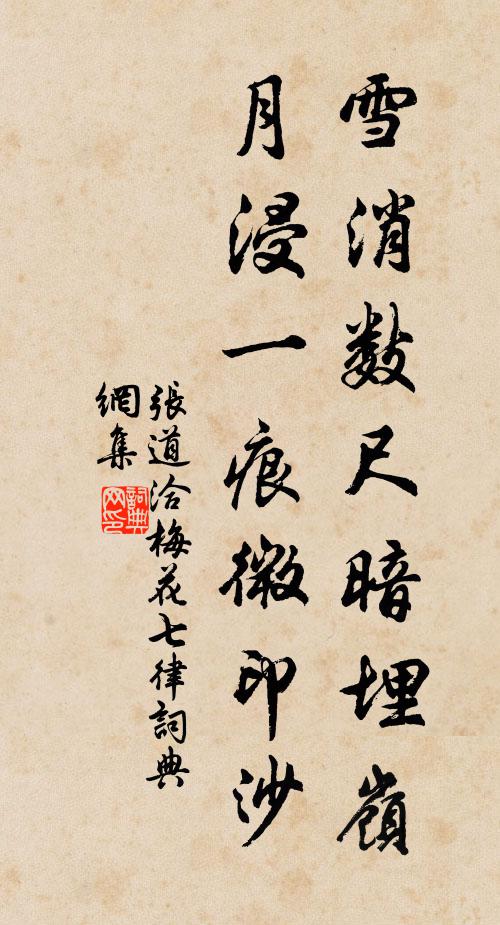 雪消數尺暗埋嶺
月浸一痕微印沙
張道洽梅花七律詞典
網集
詞典網印